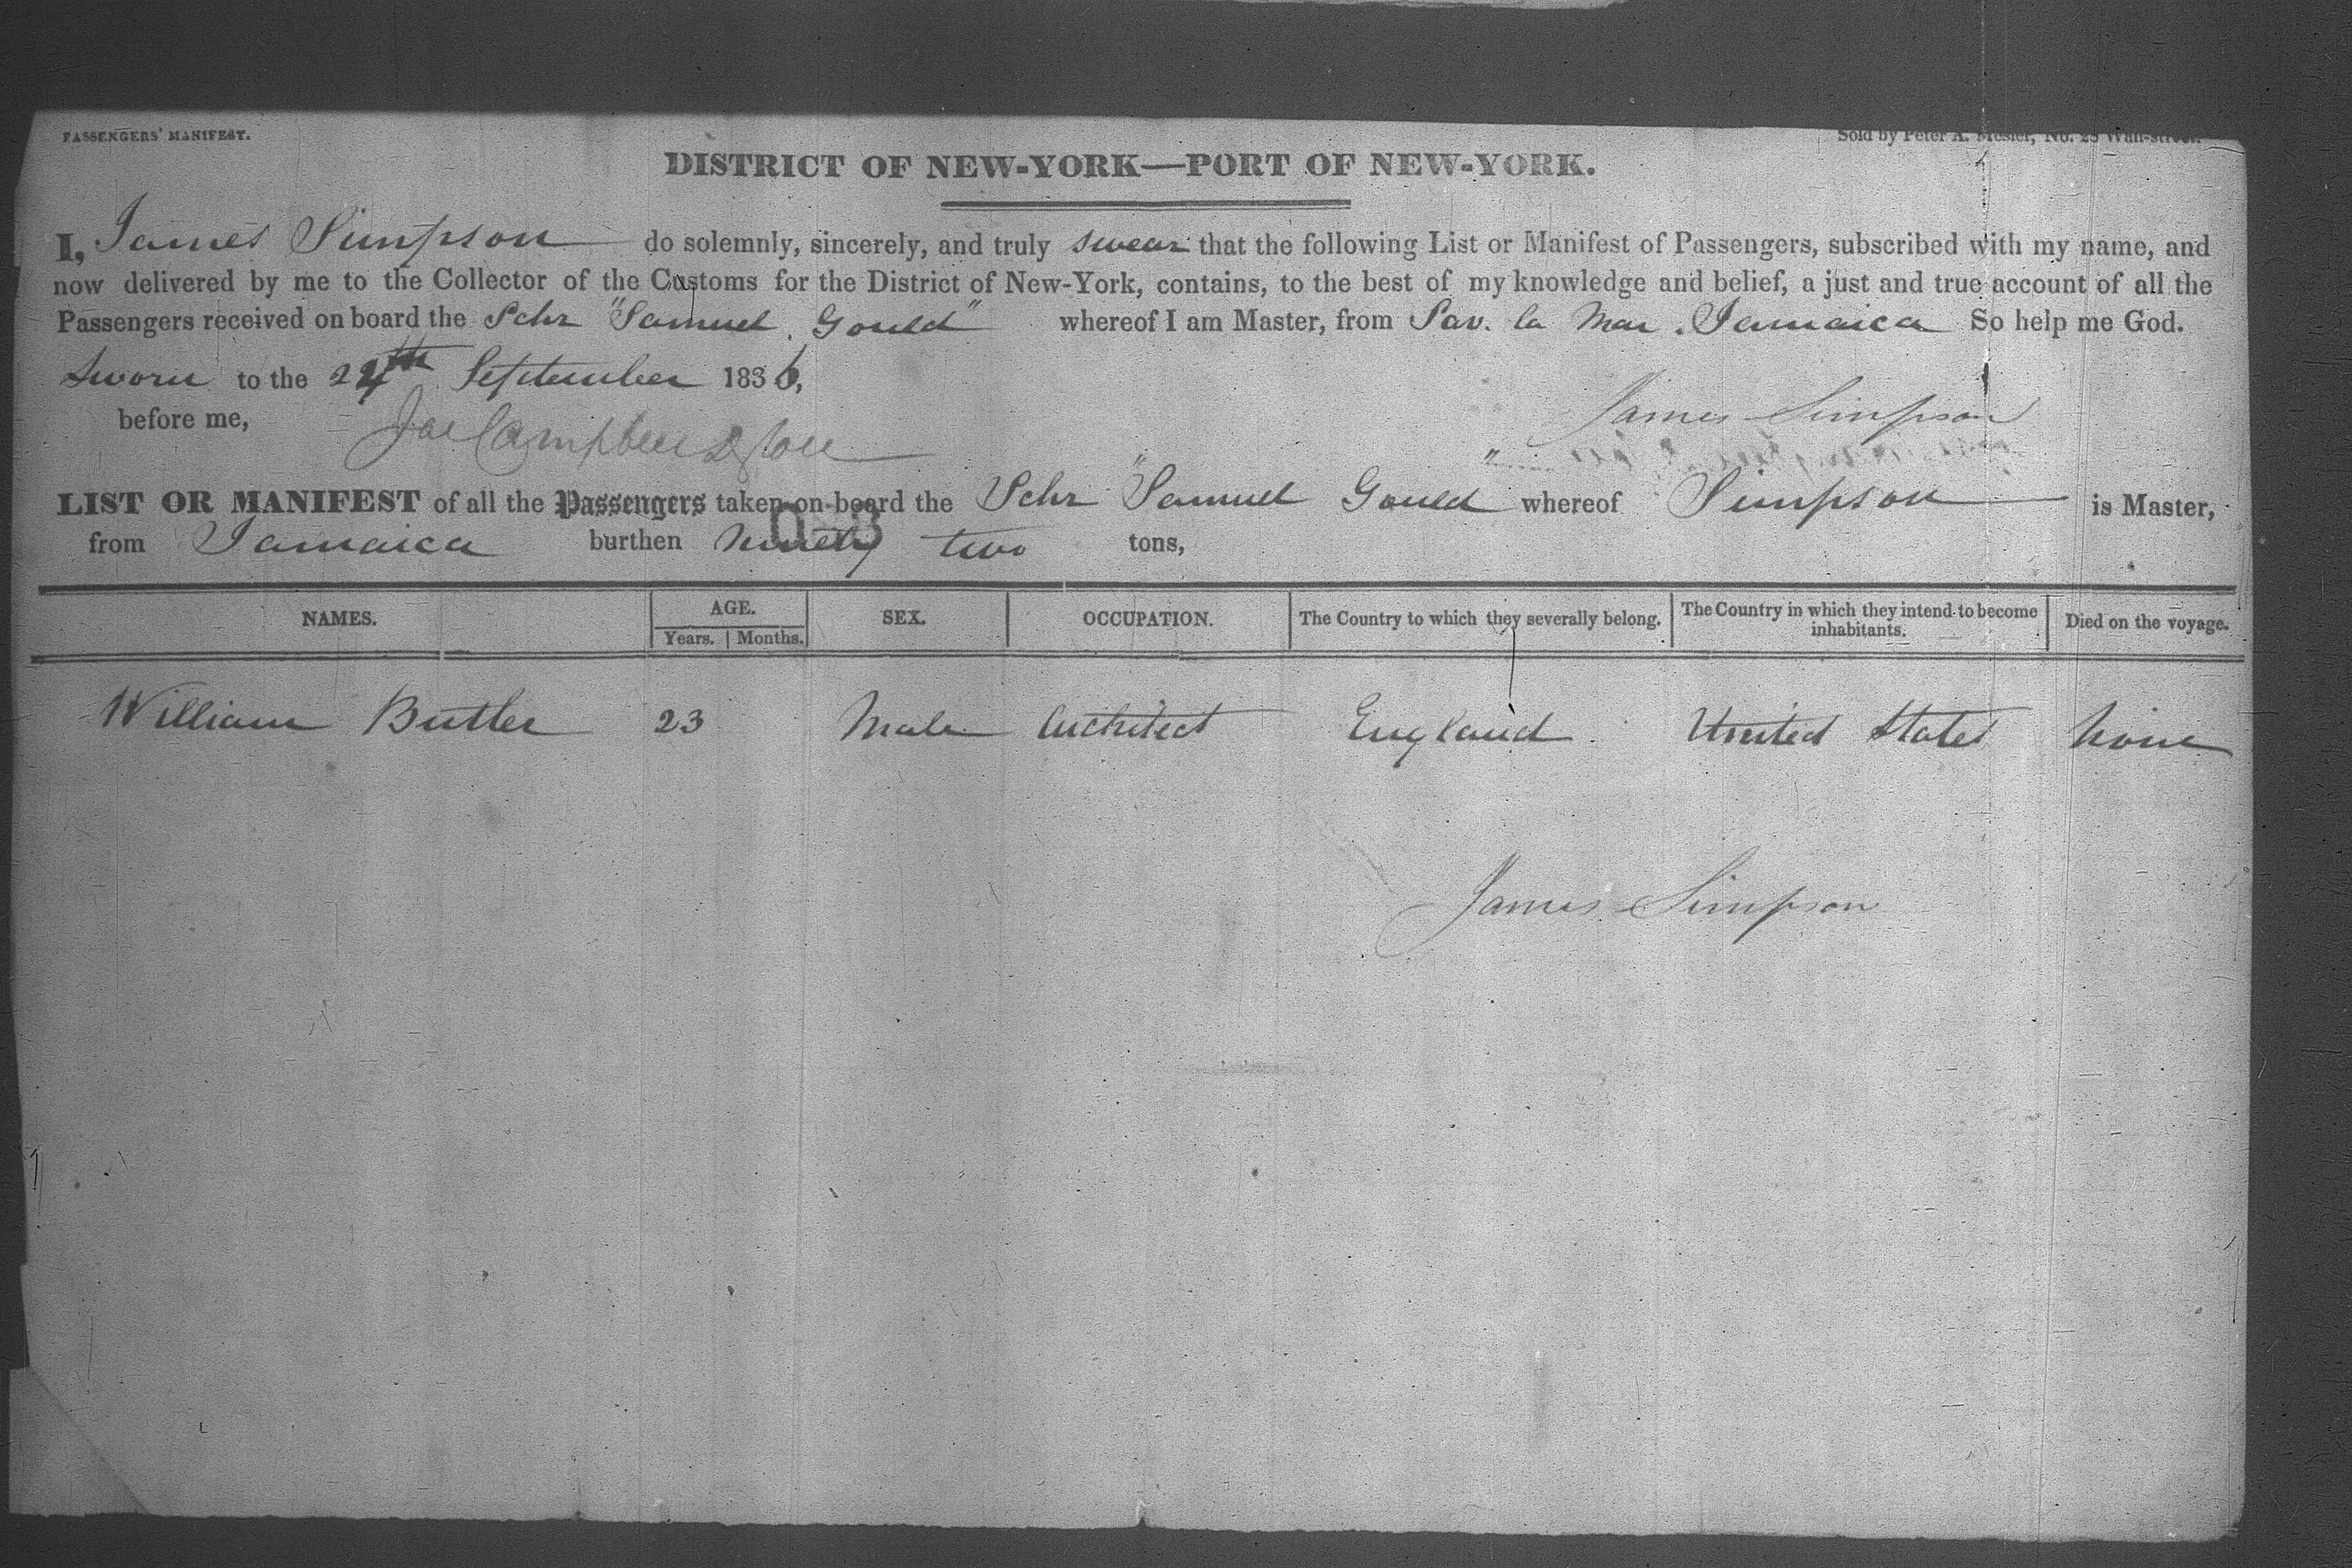 PASSENGERS' MANIFEST.
Sold by Peter A. Mesier, No. 28 Wall-street.
DISTRICT OF NEW-YORK—PORT OF NEW-YORK.
I, James Simpson do solemnly, sincerely, and truly swear that the following List or Manifest of Passengers, subscribed with my name, and
now delivered by me to the Collector of the Customs for the District of New-York, contains, to the best of my knowledge and belief, a just and true account of all the
Passengers received on board the Schr "Samuel Gould" whereof I am Master, from Sav. la Mar. Jamaica So help me God.
Sworn to the 24th September 1836,
James Simpson
before me,
LIST OR MANIFEST of all the Passengers taken on board the Schr "Samuel Gould" whereof Simpson is Master,
from Jamaica burthen ninety two tons,
NAMES. AGE. Years. Months. SEX. OCCUPATION. The Country to which they severally belong. The Country in which they intend to become inhabitants. Died on the voyage.
William Butler 23 Male Architect England United States None
James Simpson